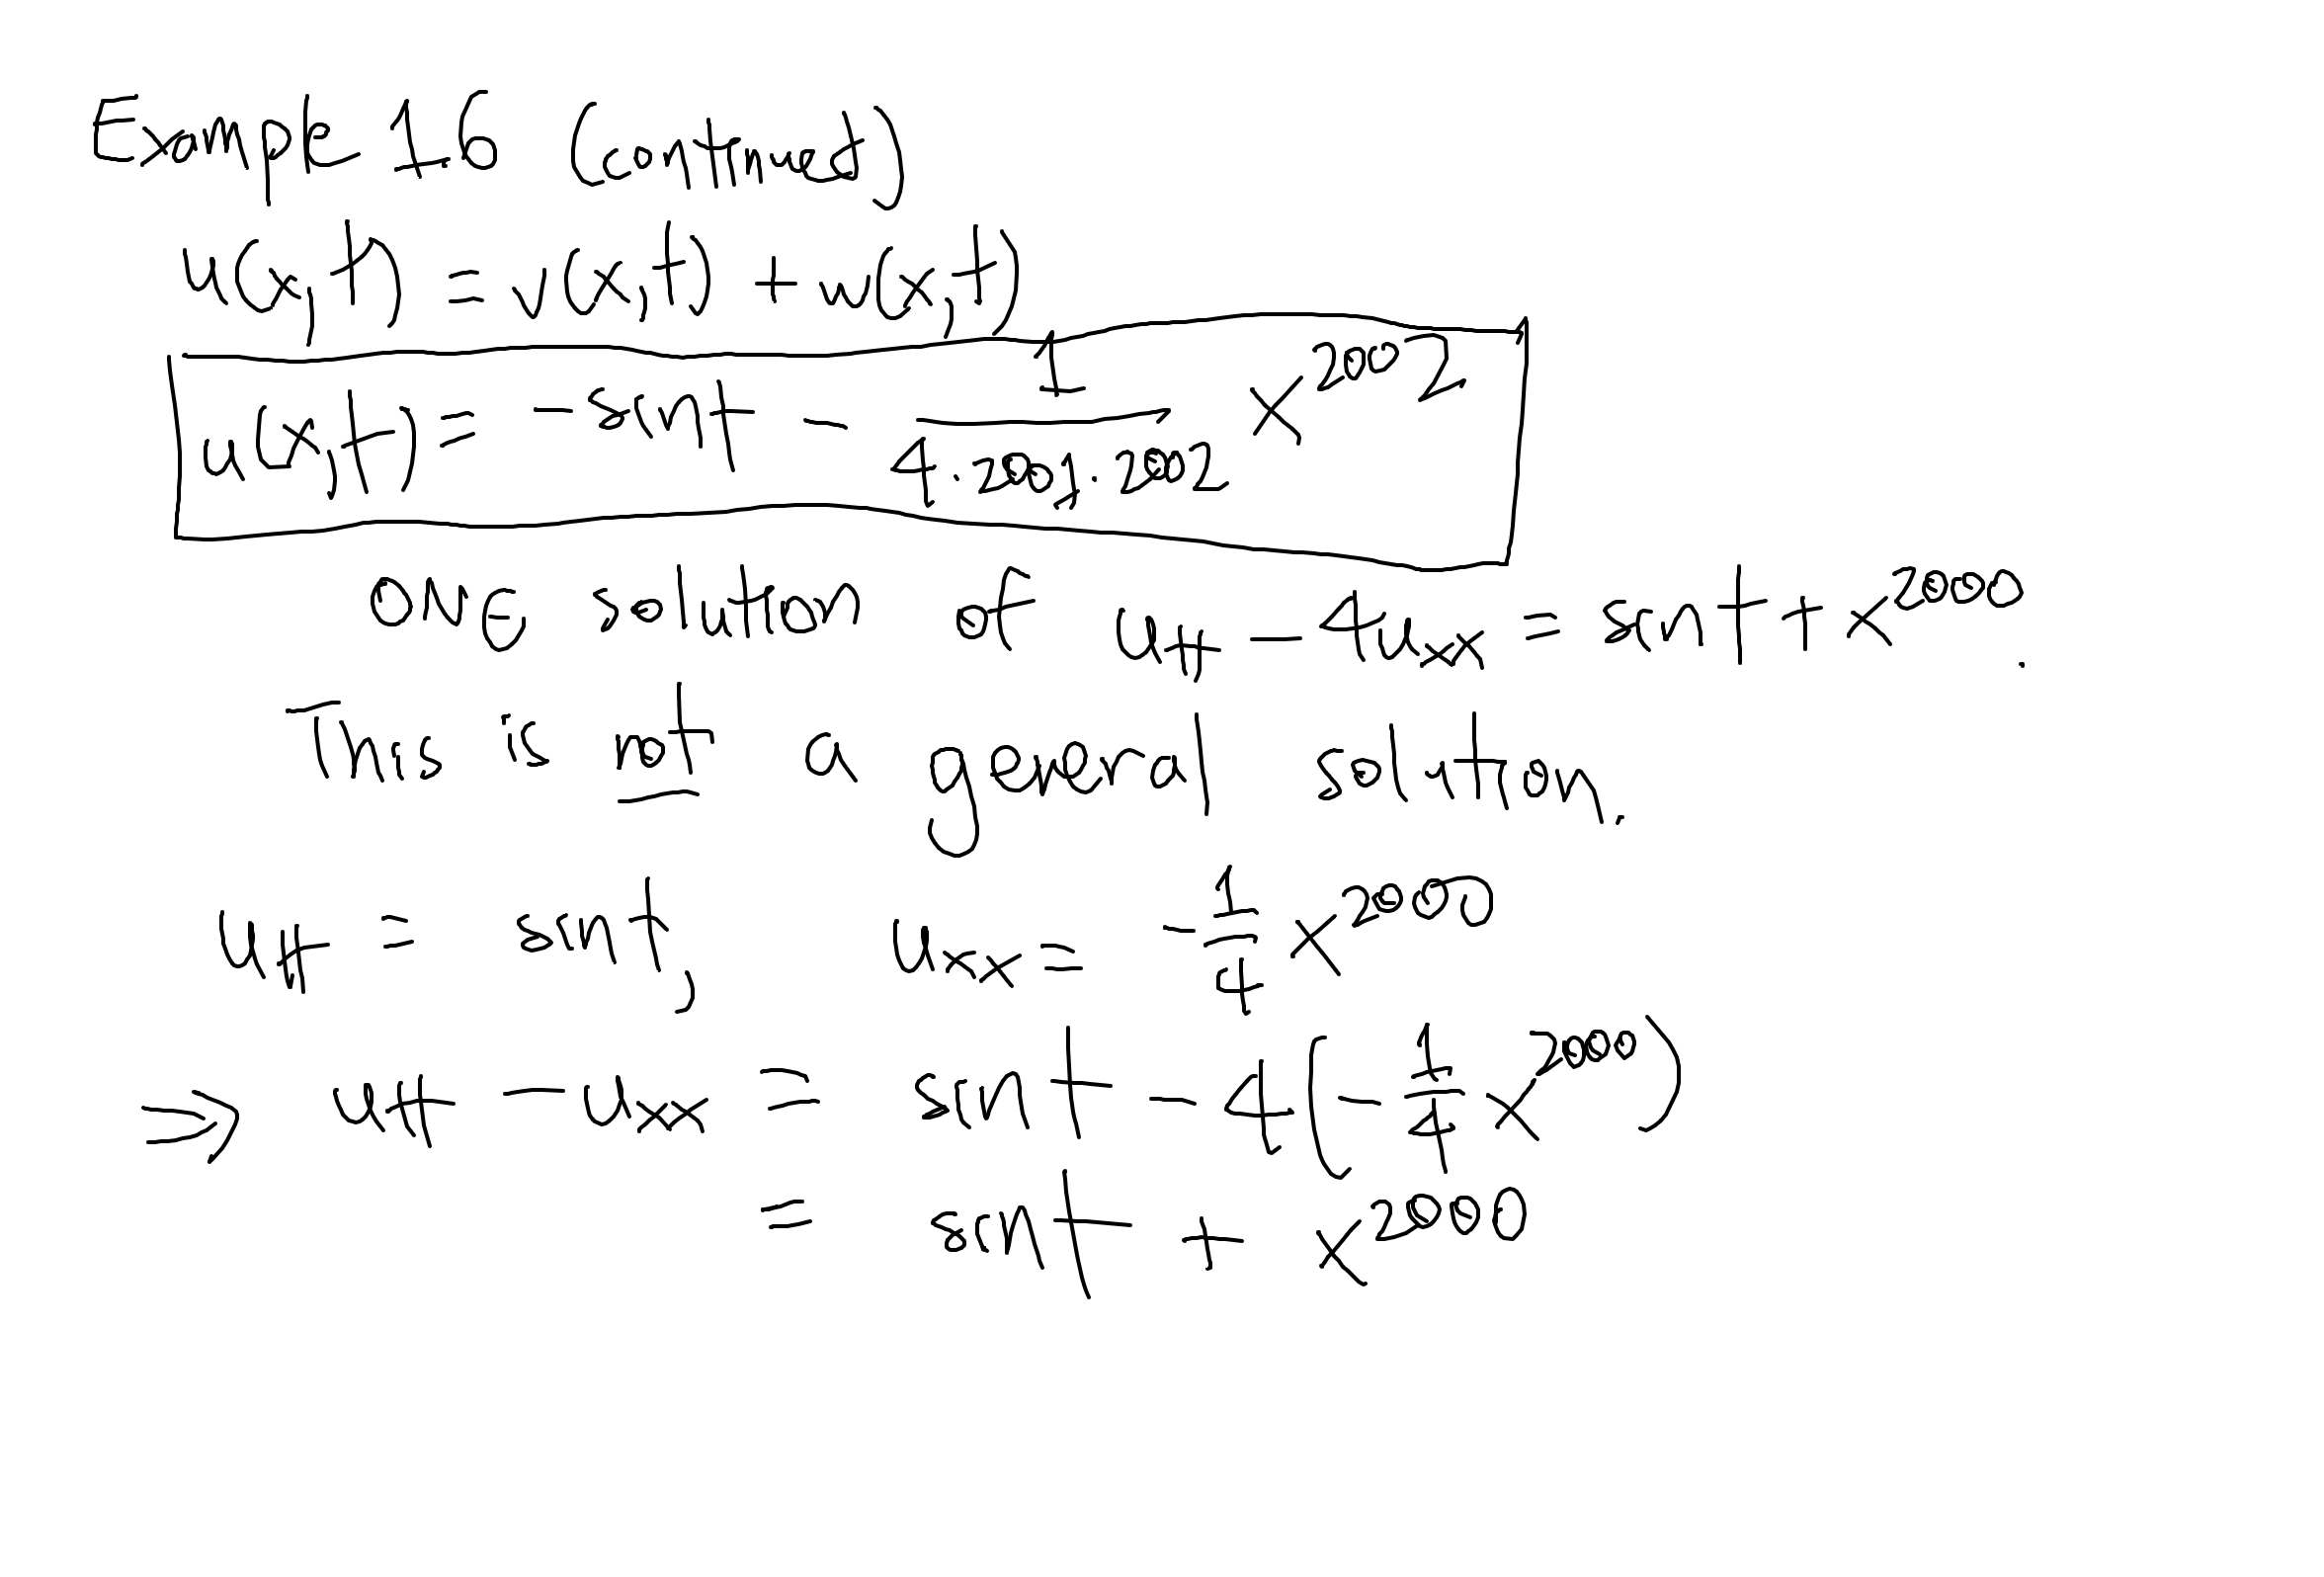 Example 1.6 (continued)
u(x,t) = v(x,t) + w(x,t)
u(x,t) = - sin t - \frac{1}{4 \cdot 2001 \cdot 2002} x^{2002}
one solution of u_{tt} - 4u_{xx} = sin t + x^{2000}.
This is not a general solution.
u_{tt} = sin t, u_{xx} = -\frac{1}{4} x^{2000}
⇒ u_{tt} - u_{xx} = sin t - 4(-\frac{1}{4} x^{2000})
= sin t + x^{2000}